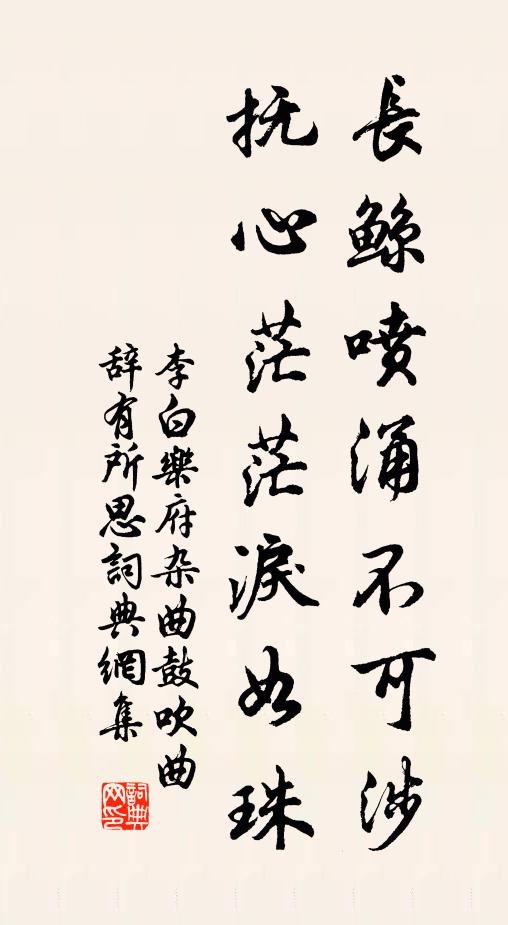 長鲸喷涌不可涉
抚心茫茫淚如珠
李白樂府杂曲鼓吹曲
辞有所思詞典網集
詞典
网印